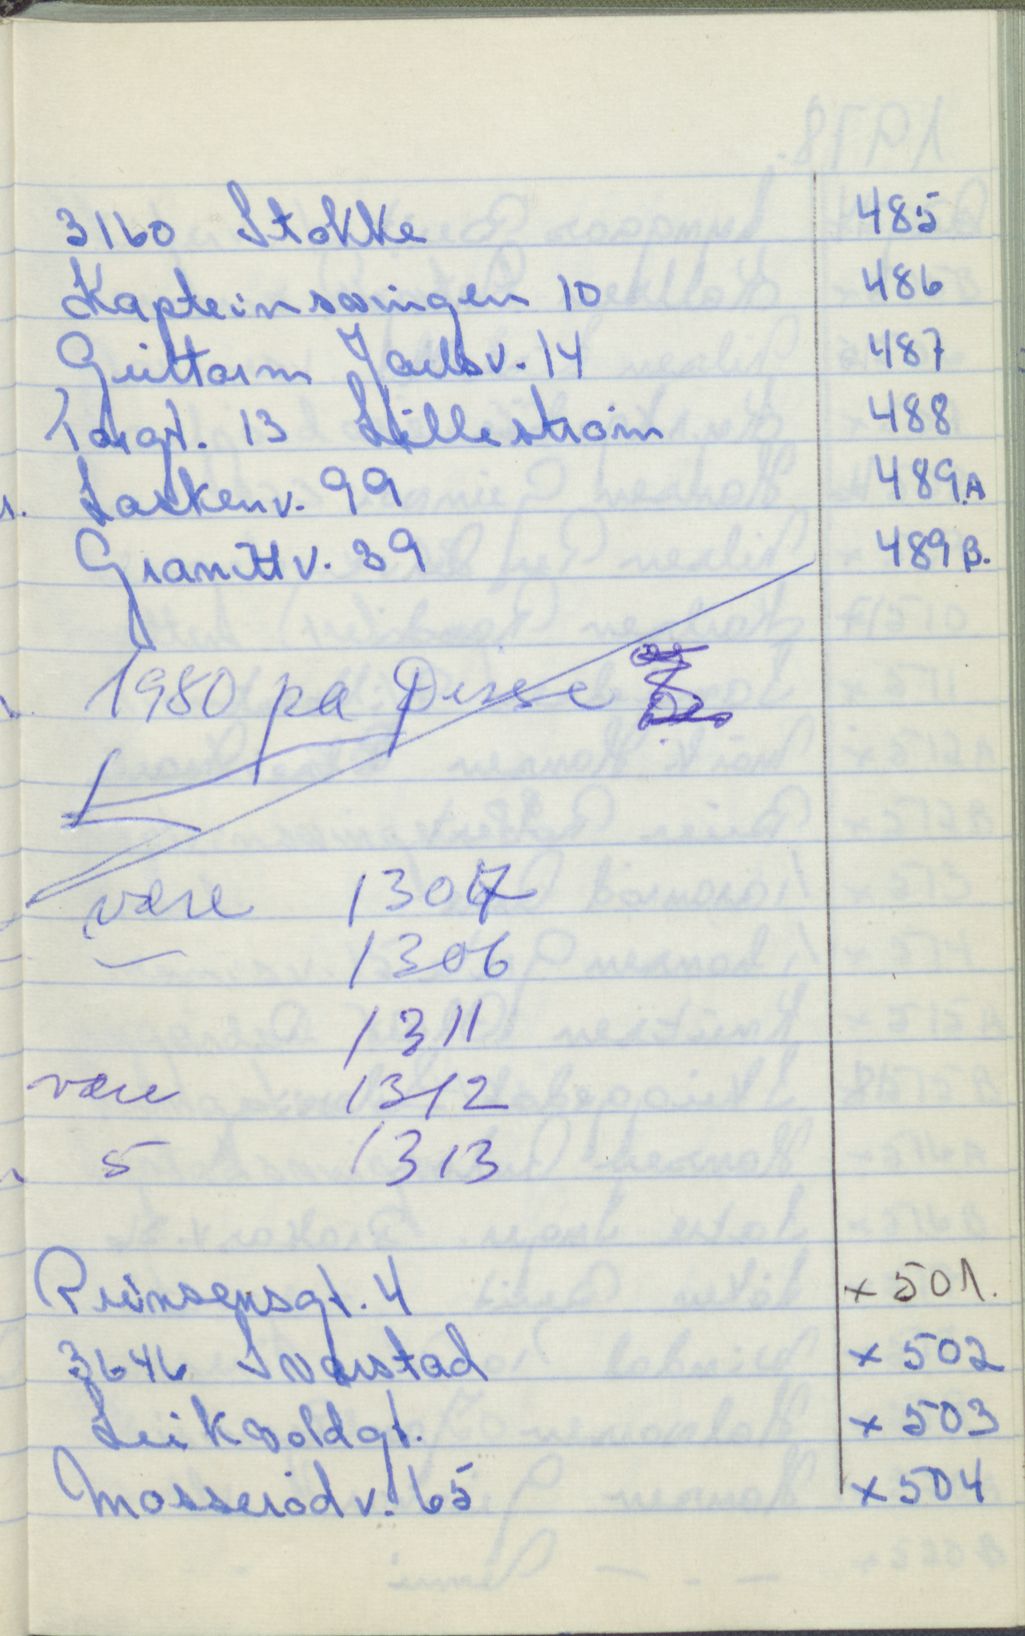 3160 Stokke 485
Kapteinsvingen 10 486
Guttorm Jarlsv. 14 487
Torgt. 13 Lillestrøm 488
Laskenv. 99 489A
Granittv. 39 489B.
1980 på Disse
være 1307
1306
1311
være 1312
5 1313
Prinsensgt. 4 x 501.
3646 Svarstad x 502
Leikvoldgt. x 503
Mosserødv. 65 x 504